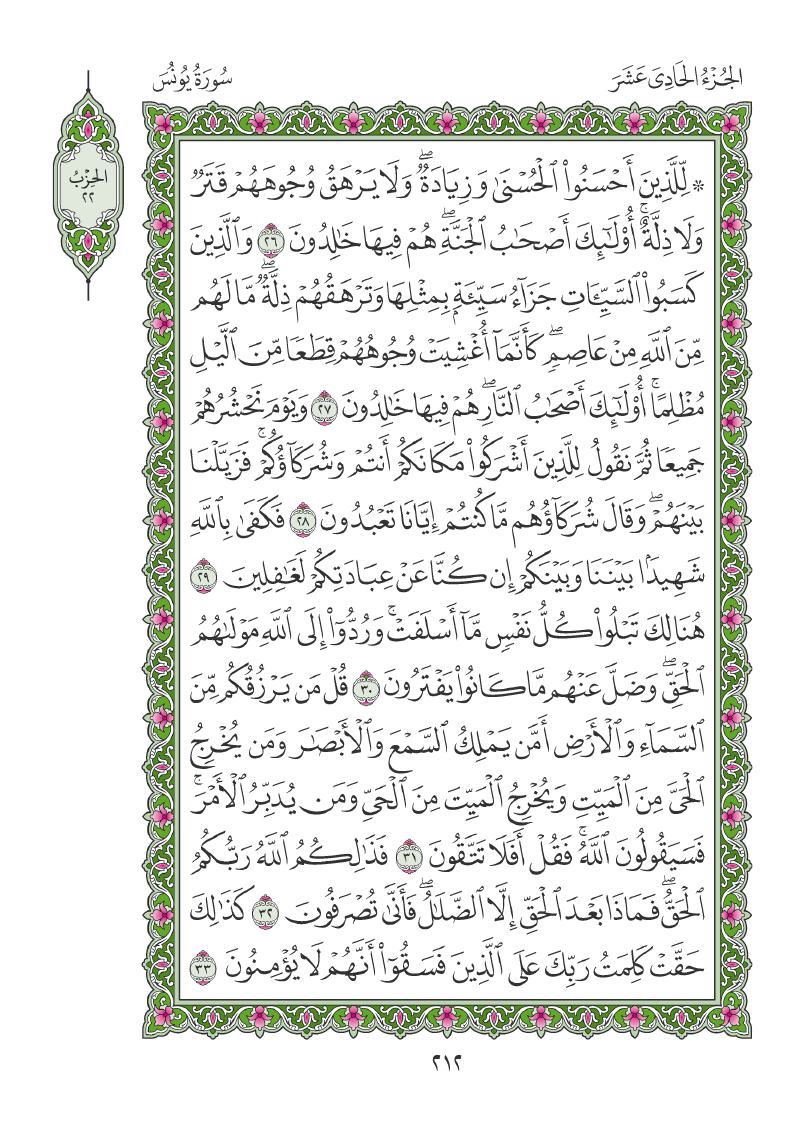 الجُزْءُ الحَادِى عَشَرَ
سُورَةُ يُونُسَ
الحِزْبُ
٢٢
۞ لِّلَّذِينَ أَحْسَنُوا۟ ٱلْحُسْنَىٰ وَزِيَادَةٌۖ وَلَا يَرْهَقُ وُجُوهَهُمْ قَتَرٌۭ
وَلَا ذِلَّةٌۚ أُو۟لَٰٓئِكَ أَصْحَٰبُ ٱلْجَنَّةِۖ هُمْ فِيهَا خَٰلِدُونَ ٢٦ وَٱلَّذِينَ
كَسَبُوا۟ ٱلسَّيِّـَٔاتِ جَزَآءُ سَيِّئَةٍۭ بِمِثْلِهَا وَتَرْهَقُهُمْ ذِلَّةٌۭۖ مَّا لَهُم
مِّنَ ٱللَّهِ مِنْ عَاصِمٍۢۖ كَأَنَّمَآ أُغْشِيَتْ وُجُوهُهُمْ قِطَعًۭا مِّنَ ٱلَّيْلِ
مُظْلِمًاۚ أُو۟لَٰٓئِكَ أَصْحَٰبُ ٱلنَّارِۖ هُمْ فِيهَا خَٰلِدُونَ ٢٧ وَيَوْمَ نَحْشُرُهُمْ
جَمِيعًۭا ثُمَّ نَقُولُ لِلَّذِينَ أَشْرَكُوا۟ مَكَانَكُمْ أَنتُمْ وَشُرَكَآؤُكُمْۚ فَزَيَّلْنَا
بَيْنَهُمْۖ وَقَالَ شُرَكَآؤُهُم مَّا كُنتُمْ إِيَّانَا تَعْبُدُونَ ٢٨ فَكَفَىٰ بِٱللَّهِ
شَهِيدًۢا بَيْنَنَا وَبَيْنَكُمْ إِن كُنَّا عَنْ عِبَادَتِكُمْ لَغَٰفِلِينَ ٢٩
هُنَالِكَ تَبْلُوا۟ كُلُّ نَفْسٍۢ مَّآ أَسْلَفَتْۚ وَرُدُّوٓا۟ إِلَى ٱللَّهِ مَوْلَىٰهُمُ
ٱلْحَقِّۖ وَضَلَّ عَنْهُم مَّا كَانُوا۟ يَفْتَرُونَ ٣٠ قُلْ مَن يَرْزُقُكُم مِّنَ
ٱلسَّمَآءِ وَٱلْأَرْضِ أَمَّن يَمْلِكُ ٱلسَّمْعَ وَٱلْأَبْصَٰرَ وَمَن يُخْرِجُ
ٱلْحَىَّ مِنَ ٱلْمَيِّتِ وَيُخْرِجُ ٱلْمَيِّتَ مِنَ ٱلْحَىِّ وَمَن يُدَبِّرُ ٱلْأَمْرَۚ
فَسَيَقُولُونَ ٱللَّهُۚ فَقُلْ أَفَلَا تَتَّقُونَ ٣١ فَذَٰلِكُمُ ٱللَّهُ رَبُّكُمُ
ٱلْحَقُّۖ فَمَاذَا بَعْدَ ٱلْحَقِّ إِلَّا ٱلضَّلَٰلُۖ فَأَنَّىٰ تُصْرَفُونَ ٣٢ كَذَٰلِكَ
حَقَّتْ كَلِمَتُ رَبِّكَ عَلَى ٱلَّذِينَ فَسَقُوٓا۟ أَنَّهُمْ لَا يُؤْمِنُونَ ٣٣
٢١٢